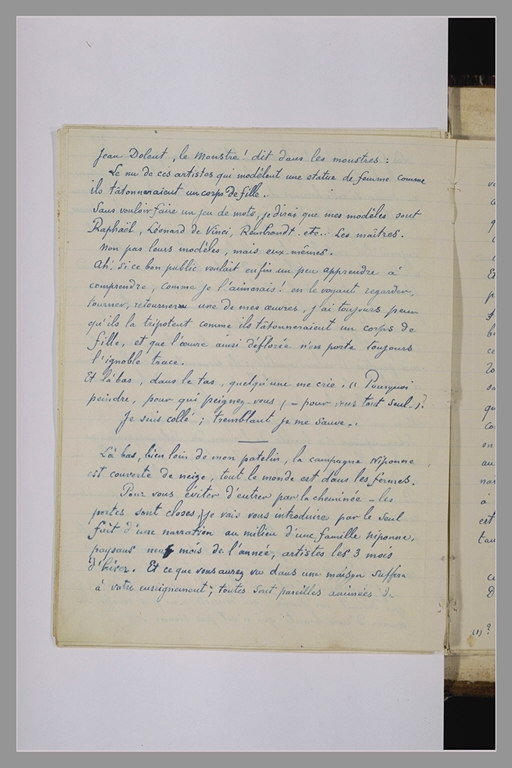 Jean Dolent, le monstre! dit dans les monstres :
Le nu de ces artistes qui modèlent une statue de femme comme
ils tâtonneraient un corps de fille.
Sans vouloir faire un jeu de mots, je dirai que mes modèles sont
Raphaël, Léonard de Vinci, Rembrandt. etc.. Les maîtres.
Non pas leurs modèles, mais eux-mêmes.
Ah! si ce bon public voulait enfin un peu apprendre à
comprendre, comme je l'aimerais! en le voyant regarder,
tourner, retourner une de mes œuvres, j'ai toujours peur
qu'ils la tripotent comme ils tâtonneraient un corps de
fille, et que l'œuvre ainsi déflorée n'en porte toujours
l'ignoble trace.
Et là bas, dans le tas, quelqu'une me crie : " Pourquoi
peindre, pour qui peignez-vous, - pour vous tout seul. "?
Je suis collé ; tremblant je me sauve..
Là bas, bien loin de mon patelin, la campagne niponne
est couverte de neige, tout le monde est dans les fermes.
Pour vous éviter d'entrer par la cheminée - les
portes sont closes, je vais vous introduire par le seul
fait d'une narration au milieu d'une famille niponne,
paysans neuf mois de l'année, artistes les 3 mois
d'hiver. Et ce que vous aurez vu dans une maison suffira
à votre enseignement ; toutes sont pareilles animées de
(1)?